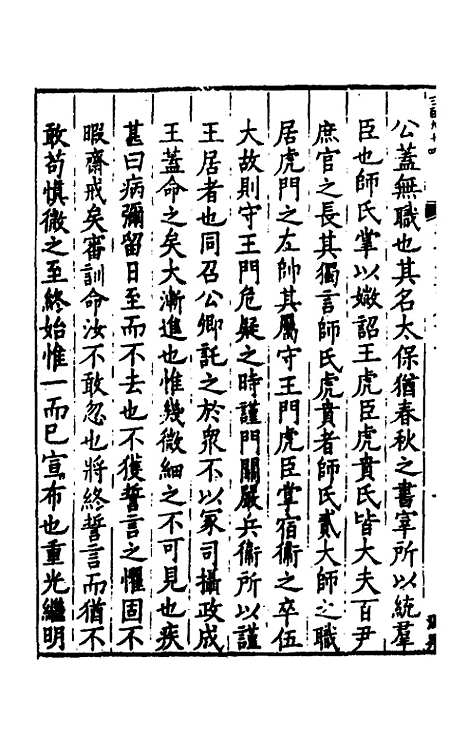 公蓋無職也其名太保猶春秋之書宰所以統羣
臣也師氏掌以媺詔王虎臣虎賁氏皆大夫百尹
庶官之長其獨言師氏虎賁者師氏貳大師之職
居虎門之左帥其屬守王門虎臣掌宿衞之卒伍
大故則守王門危疑之時謹門關嚴兵衞所以謹
王居者也同召公卿託之於衆不以冢司攝政成
王蓋命之矣大漸進也惟幾微細之不可見也疾
甚曰病彌留日至而不去也不獲誓言之懼固不
暇齋戒矣審訓命汝不敢忽也將終誓言而猶不
敢苟慎微之至終始惟一而已宣布也重光繼明